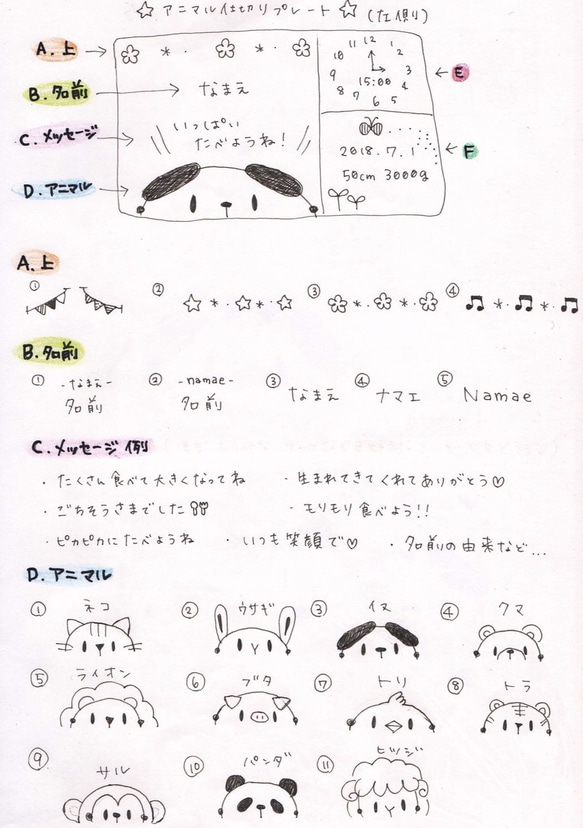 ☆ アニマル仕切りプレート ☆ (左側り)
A. 上
B. 名前
C. メッセージ
D. アニマル
なまえ
いっぱい
たべようね!
12
11
1
10
2
9
3
15:00
8
4
7
6
5
E
2018.7.1
50cm 3000g
F
A. 上
① ② ③ ④
B. 名前
① -なまえ- 名前
② -namae- 名前
③ なまえ
④ ナマエ
⑤ Namae
C. メッセージ 例
・たくさん食べて大きくなってね ・生まれてきてくれてありがとう♡
・ごちそうさまでした ・モリモリ食べよう!!
・ピカピカにたべようね ・いつも笑顔で♡ ・名前の由来など...
D. アニマル
① ネコ ② ウサギ ③ イヌ ④ クマ
⑤ ライオン ⑥ ブタ ⑦ トリ ⑧ トラ
⑨ サル ⑩ パンダ ⑪ ヒツジ